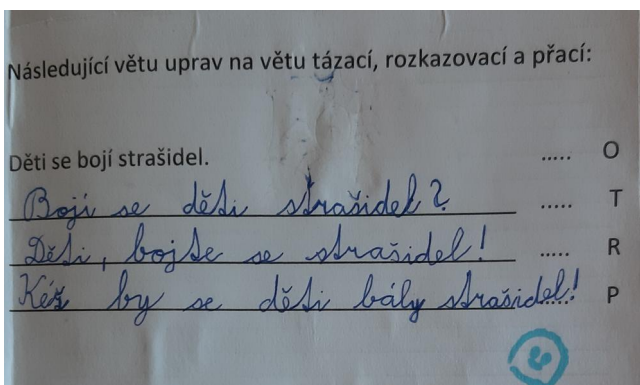 Následující větu uprav na větu tázací, rozkazovací a přací:
Děti se bojí strašidel. ..... O
Bojí se děti strašidel? ..... T
Děti, bojte se strašidel! ..... R
Kéž by se děti bály strašidel! ..... P